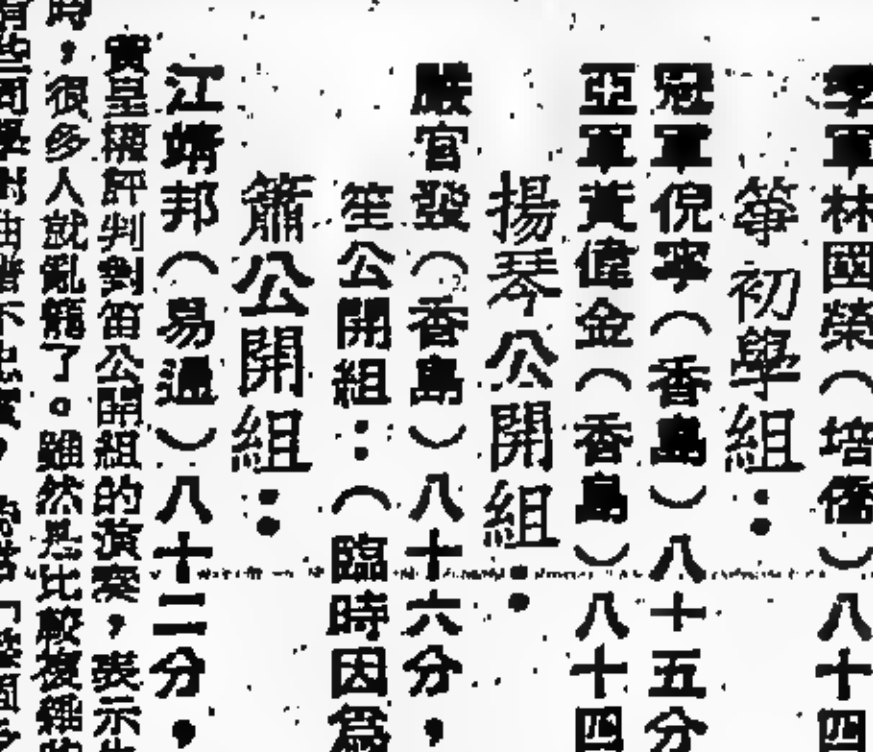 季軍林國榮（培僑）八十四
箏初學組：
冠軍倪寧（香島）八十五分
亞軍黃偉金（香島）八十四
揚琴公開組：
嚴官發（香島）八十六分，
笙公開組：（臨時因爲
簫公開組：
江婧邦（易通）八十二分，
評判對笛公開組的演奏，表示
時，很多人就亂龍了。雖然是比較複雜的
有些同學對曲譜不忠實，